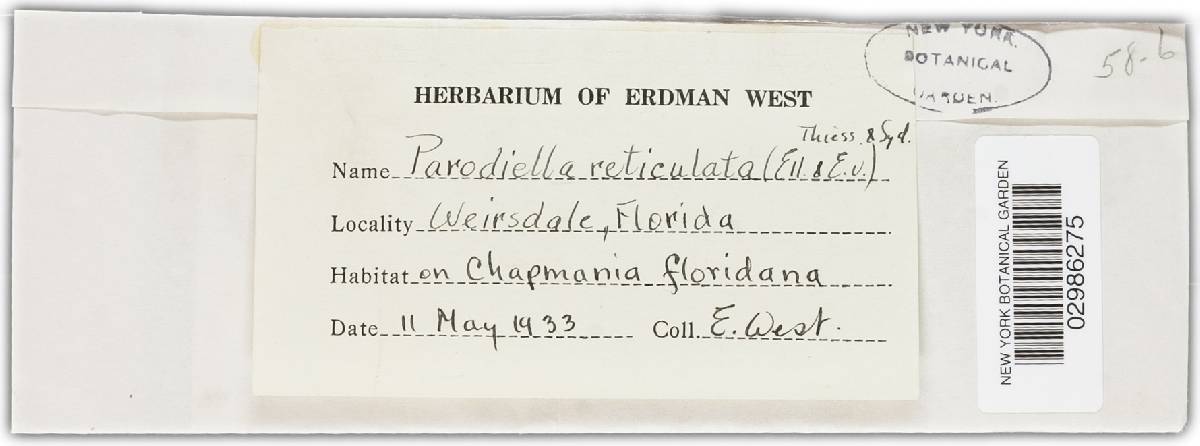 NEW YORK
BOTANICAL
GARDEN.
58-6
HERBARIUM OF ERDMAN WEST
Thiess. & Syd.
Name Parodiella reticulata (Ell. & Ev.)
Locality Weirsdale, Florida
Habitat on Chapmania floridana
Date 11 May 1933 Coll. E. West.
NEW YORK BOTANICAL GARDEN
02986275